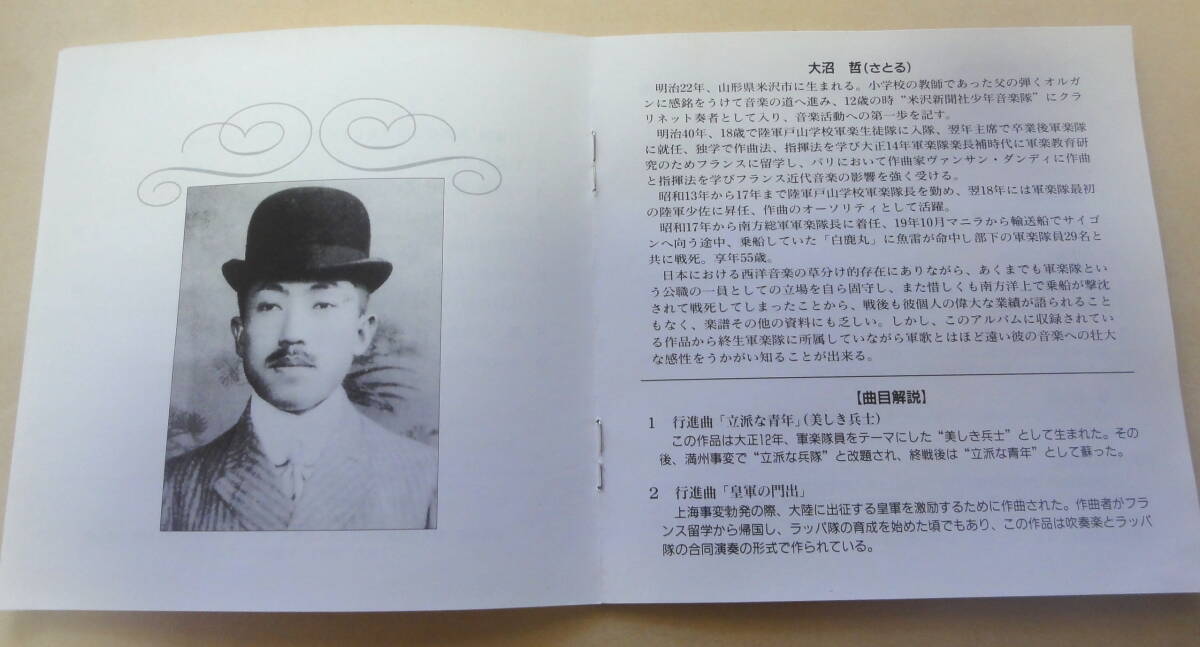 大沼　哲(さとる)
明治22年、山形県米沢市に生まれる。小学校の教師であった父の弾くオルガ
ンに感銘をうけて音楽の道へ進み、12歳の時“米沢新聞社少年音楽隊”にクラ
リネット奏者として入り、音楽活動への第一歩を記す。
明治40年、18歳で陸軍戸山学校軍楽生徒隊に入隊、翌年主席で卒業後軍楽隊
に就任、独学で作曲法、指揮法を学び大正14年軍楽隊楽長補時代に軍楽教育研
究のためフランスに留学し、パリにおいて作曲家ヴァンサン・ダンディに作曲
と指揮法を学びフランス近代音楽の影響を強く受ける。
昭和13年から17年まで陸軍戸山学校軍楽隊長を勤め、翌18年には軍楽隊最初
の陸軍少佐に昇任、作曲のオーソリティとして活躍。
昭和17年から南方総軍軍楽隊長に着任、19年10月マニラから輸送船でサイゴ
ンへ向う途中、乗船していた「白鹿丸」に魚雷が命中し部下の軍楽隊員29名と
共に戦死。享年55歳。
日本における西洋音楽の草分け的存在にありながら、あくまでも軍楽隊とい
う公職の一員としての立場を自ら固守し、また惜しくも南方洋上で乗船が撃沈
されて戦死してしまったことから、戦後も彼個人の偉大な業績が語られること
もなく、楽譜その他の資料にも乏しい。しかし、このアルバムに収録されてい
る作品から終生軍楽隊に所属していながら軍歌とはほど遠い彼の音楽への壮大
な感性をうかがい知ることが出来る。
【曲目解説】
1　行進曲「立派な青年」(美しき兵士)
この作品は大正12年、軍楽隊員をテーマにした“美しき兵士”として生まれた。その
後、満州事変で“立派な兵隊”と改題され、終戦後は“立派な青年”として蘇った。
2　行進曲「皇軍の門出」
上海事変勃発の際、大陸に出征する皇軍を激励するために作曲された。作曲者がフラ
ンス留学から帰国し、ラッパ隊の育成を始めた頃でもあり、この作品は吹奏楽とラッパ
隊の合同演奏の形式で作られている。